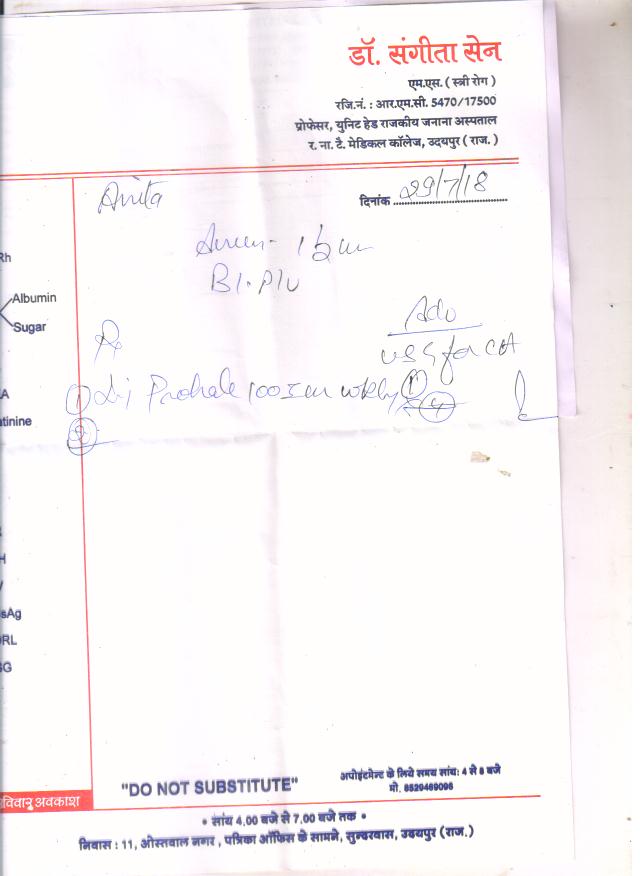 डॉ. संगीता सेन
एम.एस. ( स्त्री रोग )
रजि.नं. : आर.एम.सी. 5470/17500
प्रोफेसर, युनिट हेड राजकीय जनाना अस्पताल
र. ना. टै. मेडिकल कॉलेज, उदयपुर ( राज. )
Anita
दिनांक 29/7/18
Rh
Albumin
Sugar
Adv
Rx
USG for
A
tinine
① 100 wkly
H
sAg
DRL
SG
"DO NOT SUBSTITUTE"
अपोइंटमेन्ट के लिये समय सांय: 4 से 8 बजे
मो. 8529469096
रविवार अवकाश
• सांय 4.00 बजे से 7.00 बजे तक •
निवास : 11, ओस्तवाल नगर , पत्रिका ऑफिस के सामने, सुन्दरवास, उदयपुर (राज.)